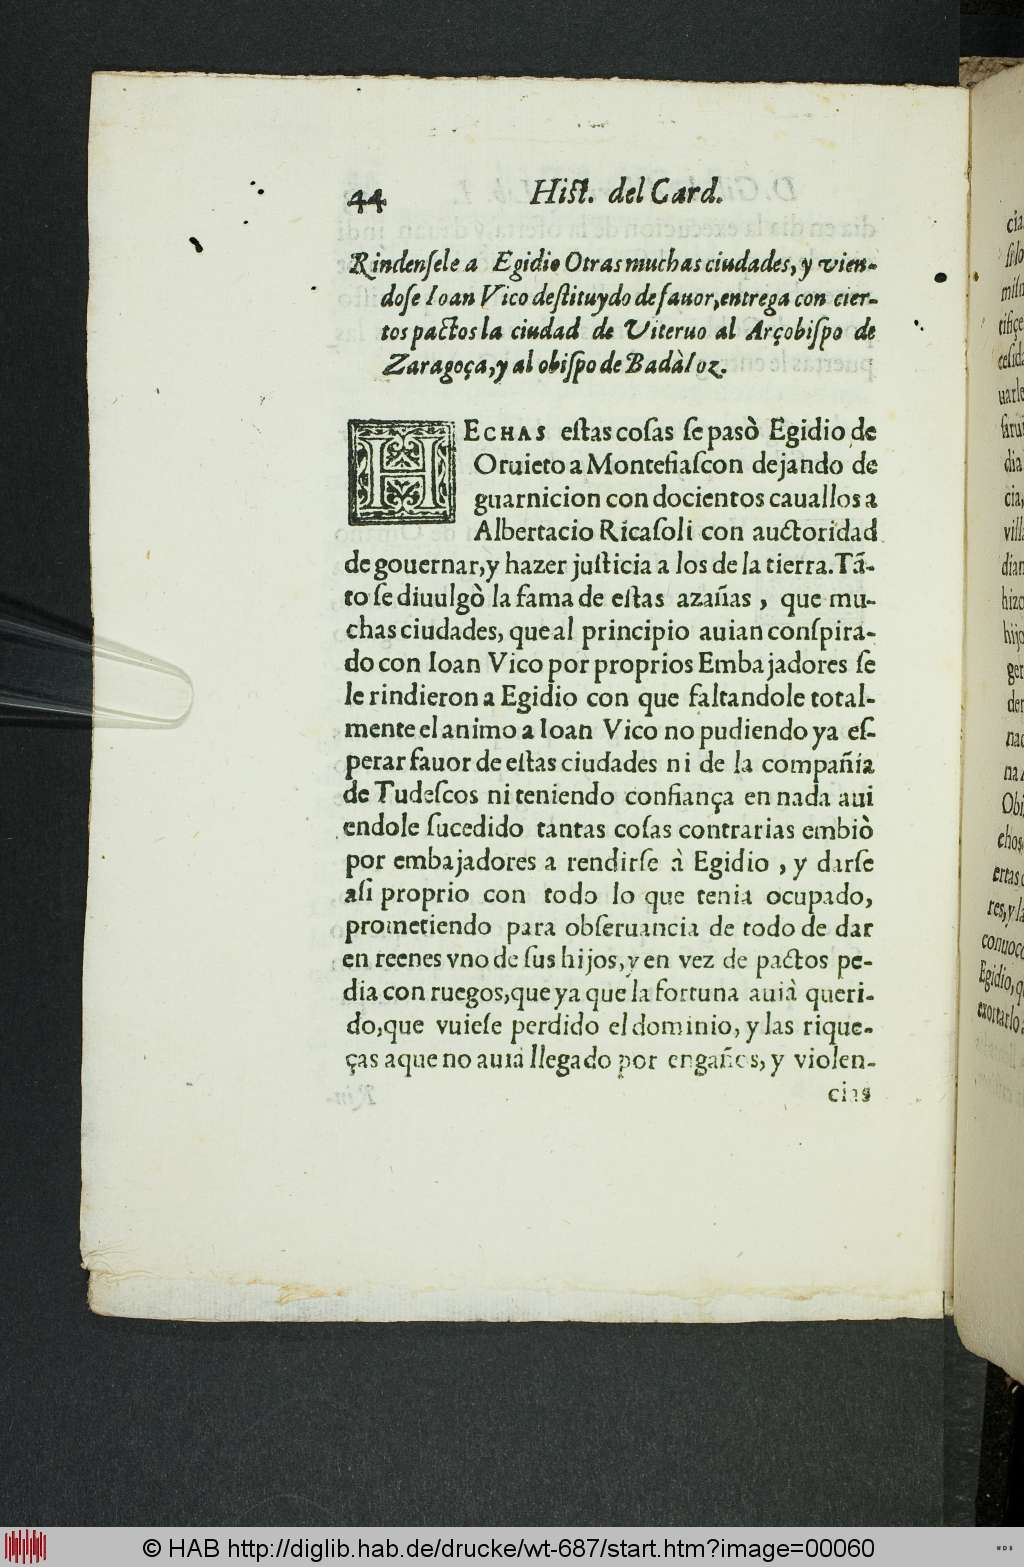 44 Hiſt. del Card.
Rindenſele a Egidio Otras muchas ciudades, y vien-
doſe Ioan Vico deſtituydo de fauor, entrega con cier-
tos pactos la ciudad de Uiteruo al Arçobiſpo de
Zaragoça, y al obiſpo de Badàloz.
HECHAS eſtas coſas ſe pasò Egidio de
Oruieto a Montefiaſcon dejando de
guarnicion con docientos cauallos a
Albertacio Ricaſoli con auctoridad
de gouernar, y hazer juſticia a los de la tierra. Tã-
to ſe diuulgò la fama de eſtas azañas, que mu-
chas ciudades, que al principio auian conſpira-
do con Ioan Vico por proprios Embajadores ſe
le rindieron a Egidio con que faltandole total-
mente el animo a Ioan Vico no pudiendo ya eſ-
perar fauor de eſtas ciudades ni de la compañía
de Tudeſcos ni teniendo confiança en nada aui
endole ſucedido tantas coſas contrarias embiò
por embajadores a rendirſe à Egidio, y darſe
aſi proprio con todo lo que tenia ocupado,
prometiendo para obſeruancia de todo de dar
en reenes vno de ſus hijos, y en vez de pactos pe-
dia con ruegos, que ya que la fortuna auià queri-
do, que vuieſe perdido el dominio, y las rique-
ças a que no auia llegado por engaños, y violen-
cias
cia
ſi lo
miſ
tifiçe
ceſida
uarle
ſaru
dia
cia,
vill
dian
hizo
hijo
ger
der
nad
na
Obi
chos
ertas
res, y la
conuoc
Egidio, q
exortarlo
© HAB http://diglib.hab.de/drucke/wt-687/start.htm?image=00060